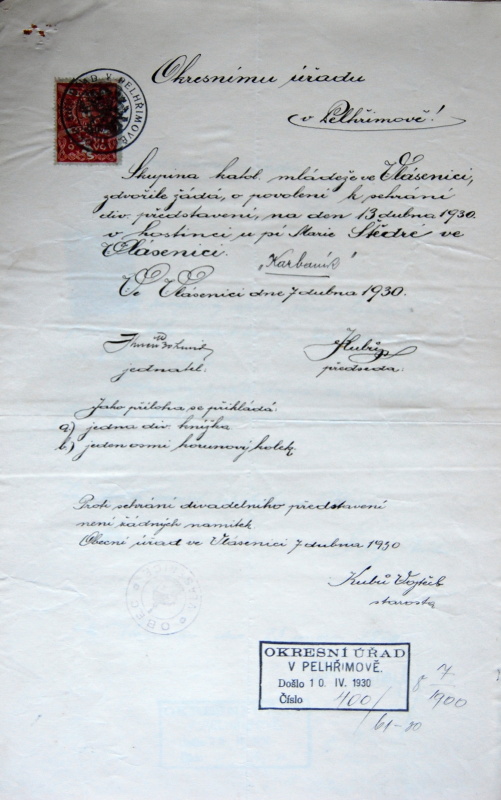 Okresnímu úřadu
v Pelhřimově!
ÚŘAD V PELHŘIMOVĚ
Skupina katol. mládeže ve Vlásenici,
zdvořile žádá, o povolení k sehrání
div. představení, na den 13 dubna 1930.
v hostinci u pí Marie Štědré ve
Vlásenici.
„Karbaník"
Ve Vlásenici dne 7 dubna 1930.
jednatel: předseda:
Jako příloha, se přikládá:
a) jedna div. knížka
b.) jeden osmi korunový kolek.
Proti sehrání divadelního představení
není žádných namítek
Obecní úřad ve Vlásenici 7 dubna 1930
Kubů Vojtěch
starosta
OBEC
OKRESNÍ ÚŘAD
V PELHŘIMOVĚ.
Došlo 10. IV. 1930
Číslo 400/
61-20
8 7/1900